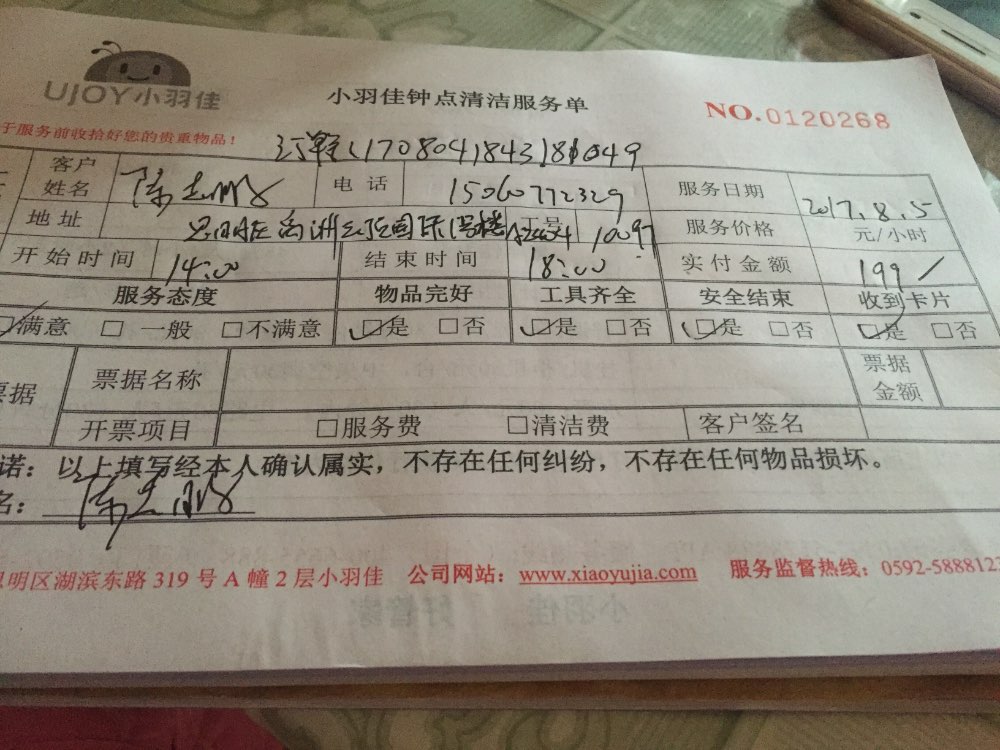 UJOY小羽佳
小羽佳钟点清洁服务单
NO.0120268
于服务前收拾好您的贵重物品！
订单(1708041843181049
客户姓名 陈志鹏 电话 15060772329 服务日期 2017.8.5
地址 国际 号楼 工号 10097 服务价格 元/小时
开始时间 14:00 结束时间 18:00 实付金额 199/
服务态度 物品完好 工具齐全 安全结束 收到卡片
☑满意 □一般 □不满意 ☑是 □否 ☑是 □否 ☑是 □否 ☑是 □否
票据 票据名称 票据金额
开票项目 □服务费 □清洁费 客户签名
诺：以上填写经本人确认属实，不存在任何纠纷，不存在任何物品损坏。
名：陈志鹏
思明区湖滨东路 319 号 A 幢 2 层小羽佳 公司网站：www.xiaoyujia.com 服务监督热线：0592-5888123